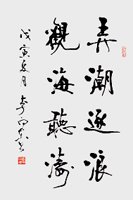 弄潮逐浪
觀海聽濤
戊寅
月